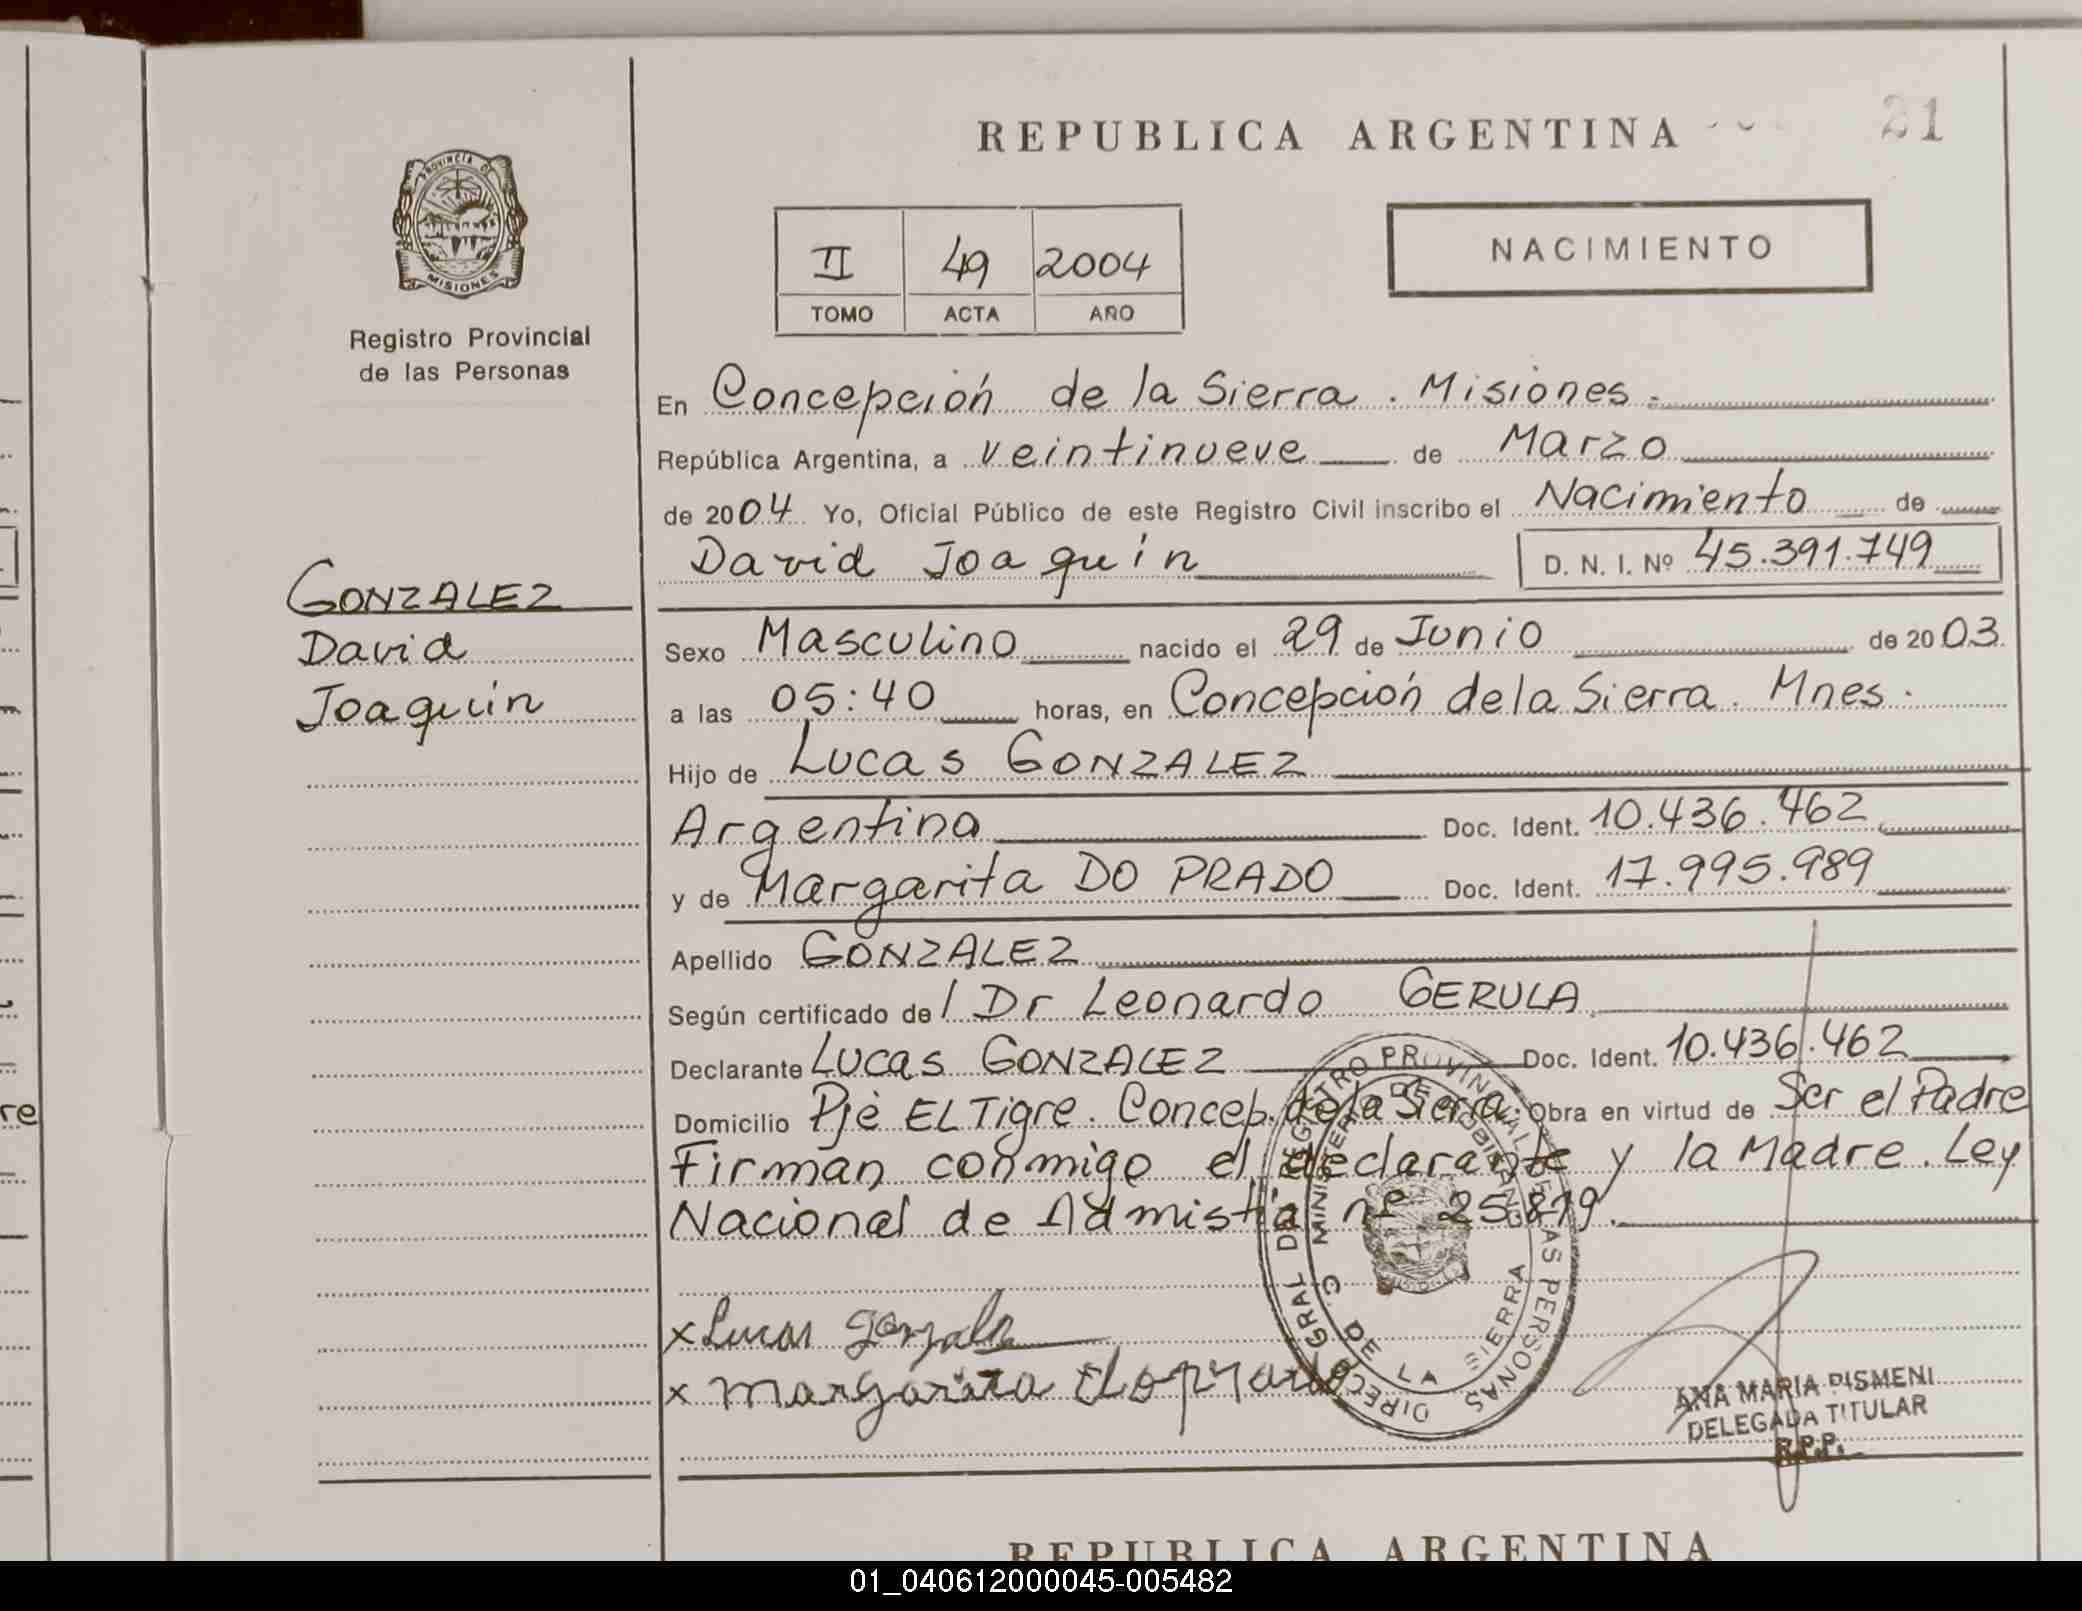 REPUBLICA ARGENTINA
21
PROVINCIA DE
MISIONES
Registro Provincial
de las Personas
II 49 2004
TOMO ACTA AÑO
NACIMIENTO
En Concepción de la Sierra. Misiones.
República Argentina, a veintinueve de Marzo
de 2004 Yo, Oficial Público de este Registro Civil inscribo el Nacimiento de
David Joaquín D. N. I. Nº 45.391.749
GONZALEZ
David
Joaquín
Sexo Masculino nacido el 29 de Junio de 2003.
a las 05:40 horas, en Concepción de la Sierra. Mnes.
Hijo de Lucas GONZALEZ
Argentina Doc. Ident. 10.436.462
y de Margarita DO PRADO Doc. Ident. 17.995.989
Apellido GONZALEZ
Según certificado de/ Dr Leonardo GERULA
Declarante Lucas GONZALEZ Doc. Ident. 10.436.462
Domicilio Pje EL Tigre. Concep. de la Sierra. Obra en virtud de Ser el Padre
Firman conmigo el declarante y la Madre. Ley
Nacional de Admistía nº 25.819.
x Lucas gonzalez
x margarita do prado
DIRECC. GRAL DEL REGISTRO PROVINCIAL DE LAS PERSONAS
MINISTERIO DE GOBIERNO
C. DE LA SIERRA
ANA MARIA PISMENI
DELEGADA TITULAR
R.P.P.
re
REPUBLICA ARGENTINA
01_040612000045-005482